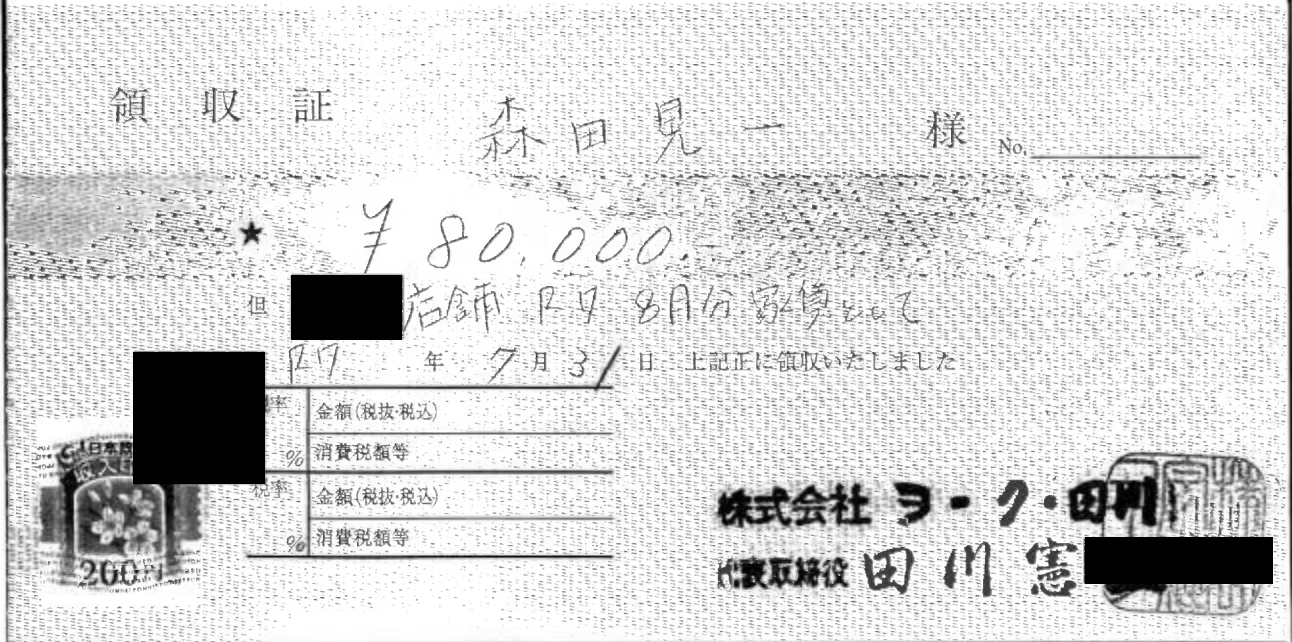 領収証 森田見一 様 No.
★ ¥80,000.-
但 店舗 R7 8月分 家賃として
R7年 7月31日 上記正に領収いたしました
税率 % 金額(税抜・税込)
消費税額等
税率 % 金額(税抜・税込)
消費税額等
日本
200円
株式会社 ヨーク・田川
代表取締役 田川憲